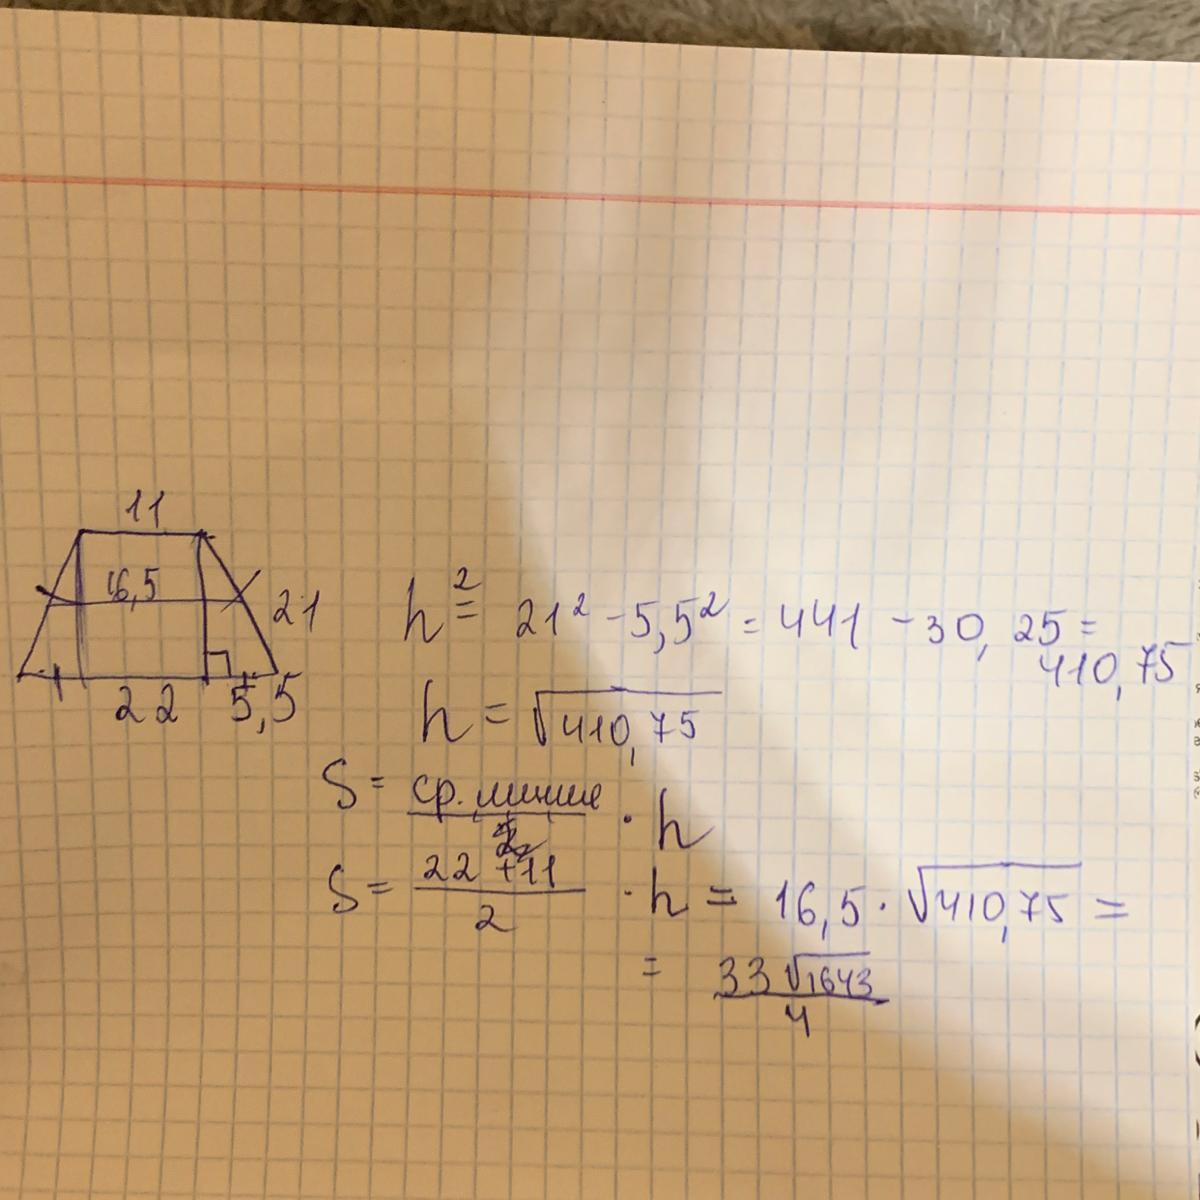 11
16,5
21
22 5,5
h² = 21² - 5,5² = 441 - 30,25 =
410,75
h = √410,75
S = ср. линие · h
S = 22 + 11 / 2 · h = 16,5 · √410,75 =
= 33√1643 / 4